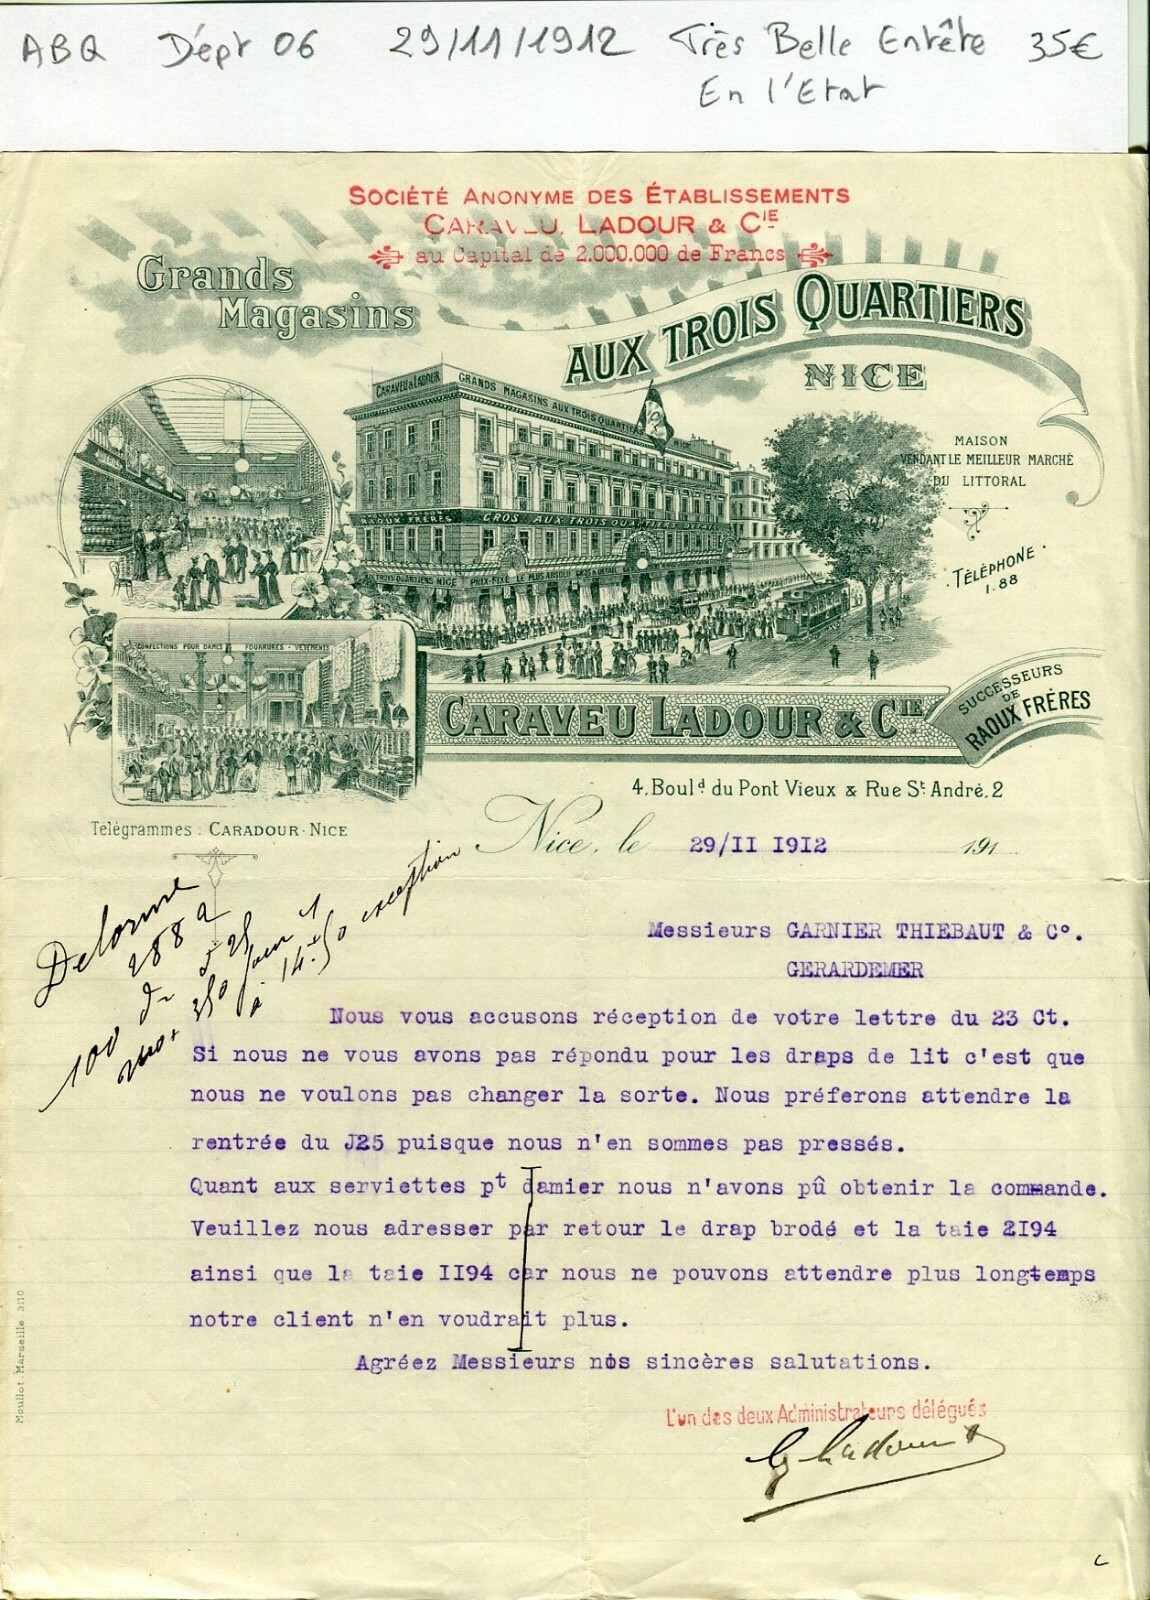 ABQ Dépt 06 29/11/1912 Très Belle Entête 35€
En l'Etat
SOCIÉTÉ ANONYME DES ÉTABLISSEMENTS
CARAVEU, LADOUR & CIE
au Capital de 2.000.000 de Francs
Grands
Magasins
AUX TROIS QUARTIERS
NICE
CARAVEU & LADOUR GRANDS MAGASINS AUX TROIS QUARTIERS NICE
MAISON
VENDANT LE MEILLEUR MARCHÉ
DU LITTORAL
RAOUX FRÈRES GROS AUX TROIS QUARTIERS DÉTAIL
TÉLÉPHONE
1.88
TROIS QUARTIERS NICE PRIX-FIXE LE PLUS ABSOLU GROS & DÉTAIL
CONFECTIONS POUR DAMES FOURRURES - VETEMENTS
CARAVEU LADOUR & CIE
SUCCESSEURS
DE
RAOUX FRÈRES
4, Bould du Pont Vieux & Rue St André, 2
Telégrammes : CARADOUR - NICE
Nice, le 29/II 1912 191
Delorme
2882
Dr 525
100 350 pour 1
à 14.50 exception
Messieurs GARNIER THIEBAUT & C°.
GERARDEMER
Nous vous accusons réception de votre lettre du 23 Ct.
Si nous ne vous avons pas répondu pour les draps de lit c'est que
nous ne voulons pas changer la sorte. Nous préferons attendre la
rentrée du J25 puisque nous n'en sommes pas pressés.
Quant aux serviettes pt damier nous n'avons pû obtenir la commande.
Veuillez nous adresser par retour le drap brodé et la taie 2I94
ainsi que la taie II94 car nous ne pouvons attendre plus longtemps
notre client n'en voudrait plus.
Agréez Messieurs nos sincères salutations.
L'un des deux Administrateurs délégués
Ladour
Moullot, Marseille 3110